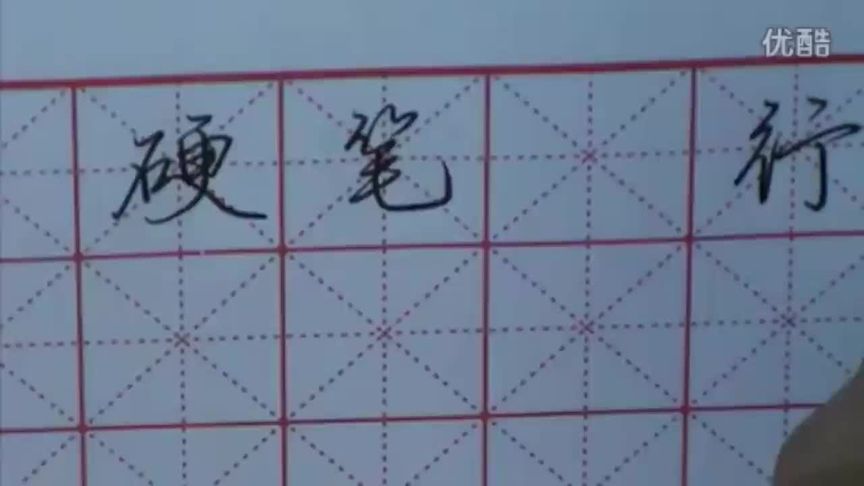 优酷
硬笔 行